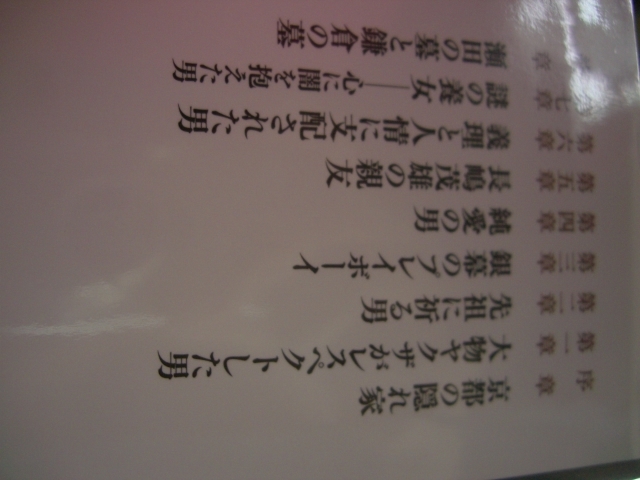 序章 京都の隠れ家
第一章 大物ヤクザがレスペクトした男
第二章 先祖に祈る男
第三章 銀幕のプレイボーイ
第四章 純愛の男
第五章 長嶋茂雄の親友
第六章 義理と人情に支配された男
七章 謎の養女――心に闇を抱えた男
章 瀬田の墓と鎌倉の墓